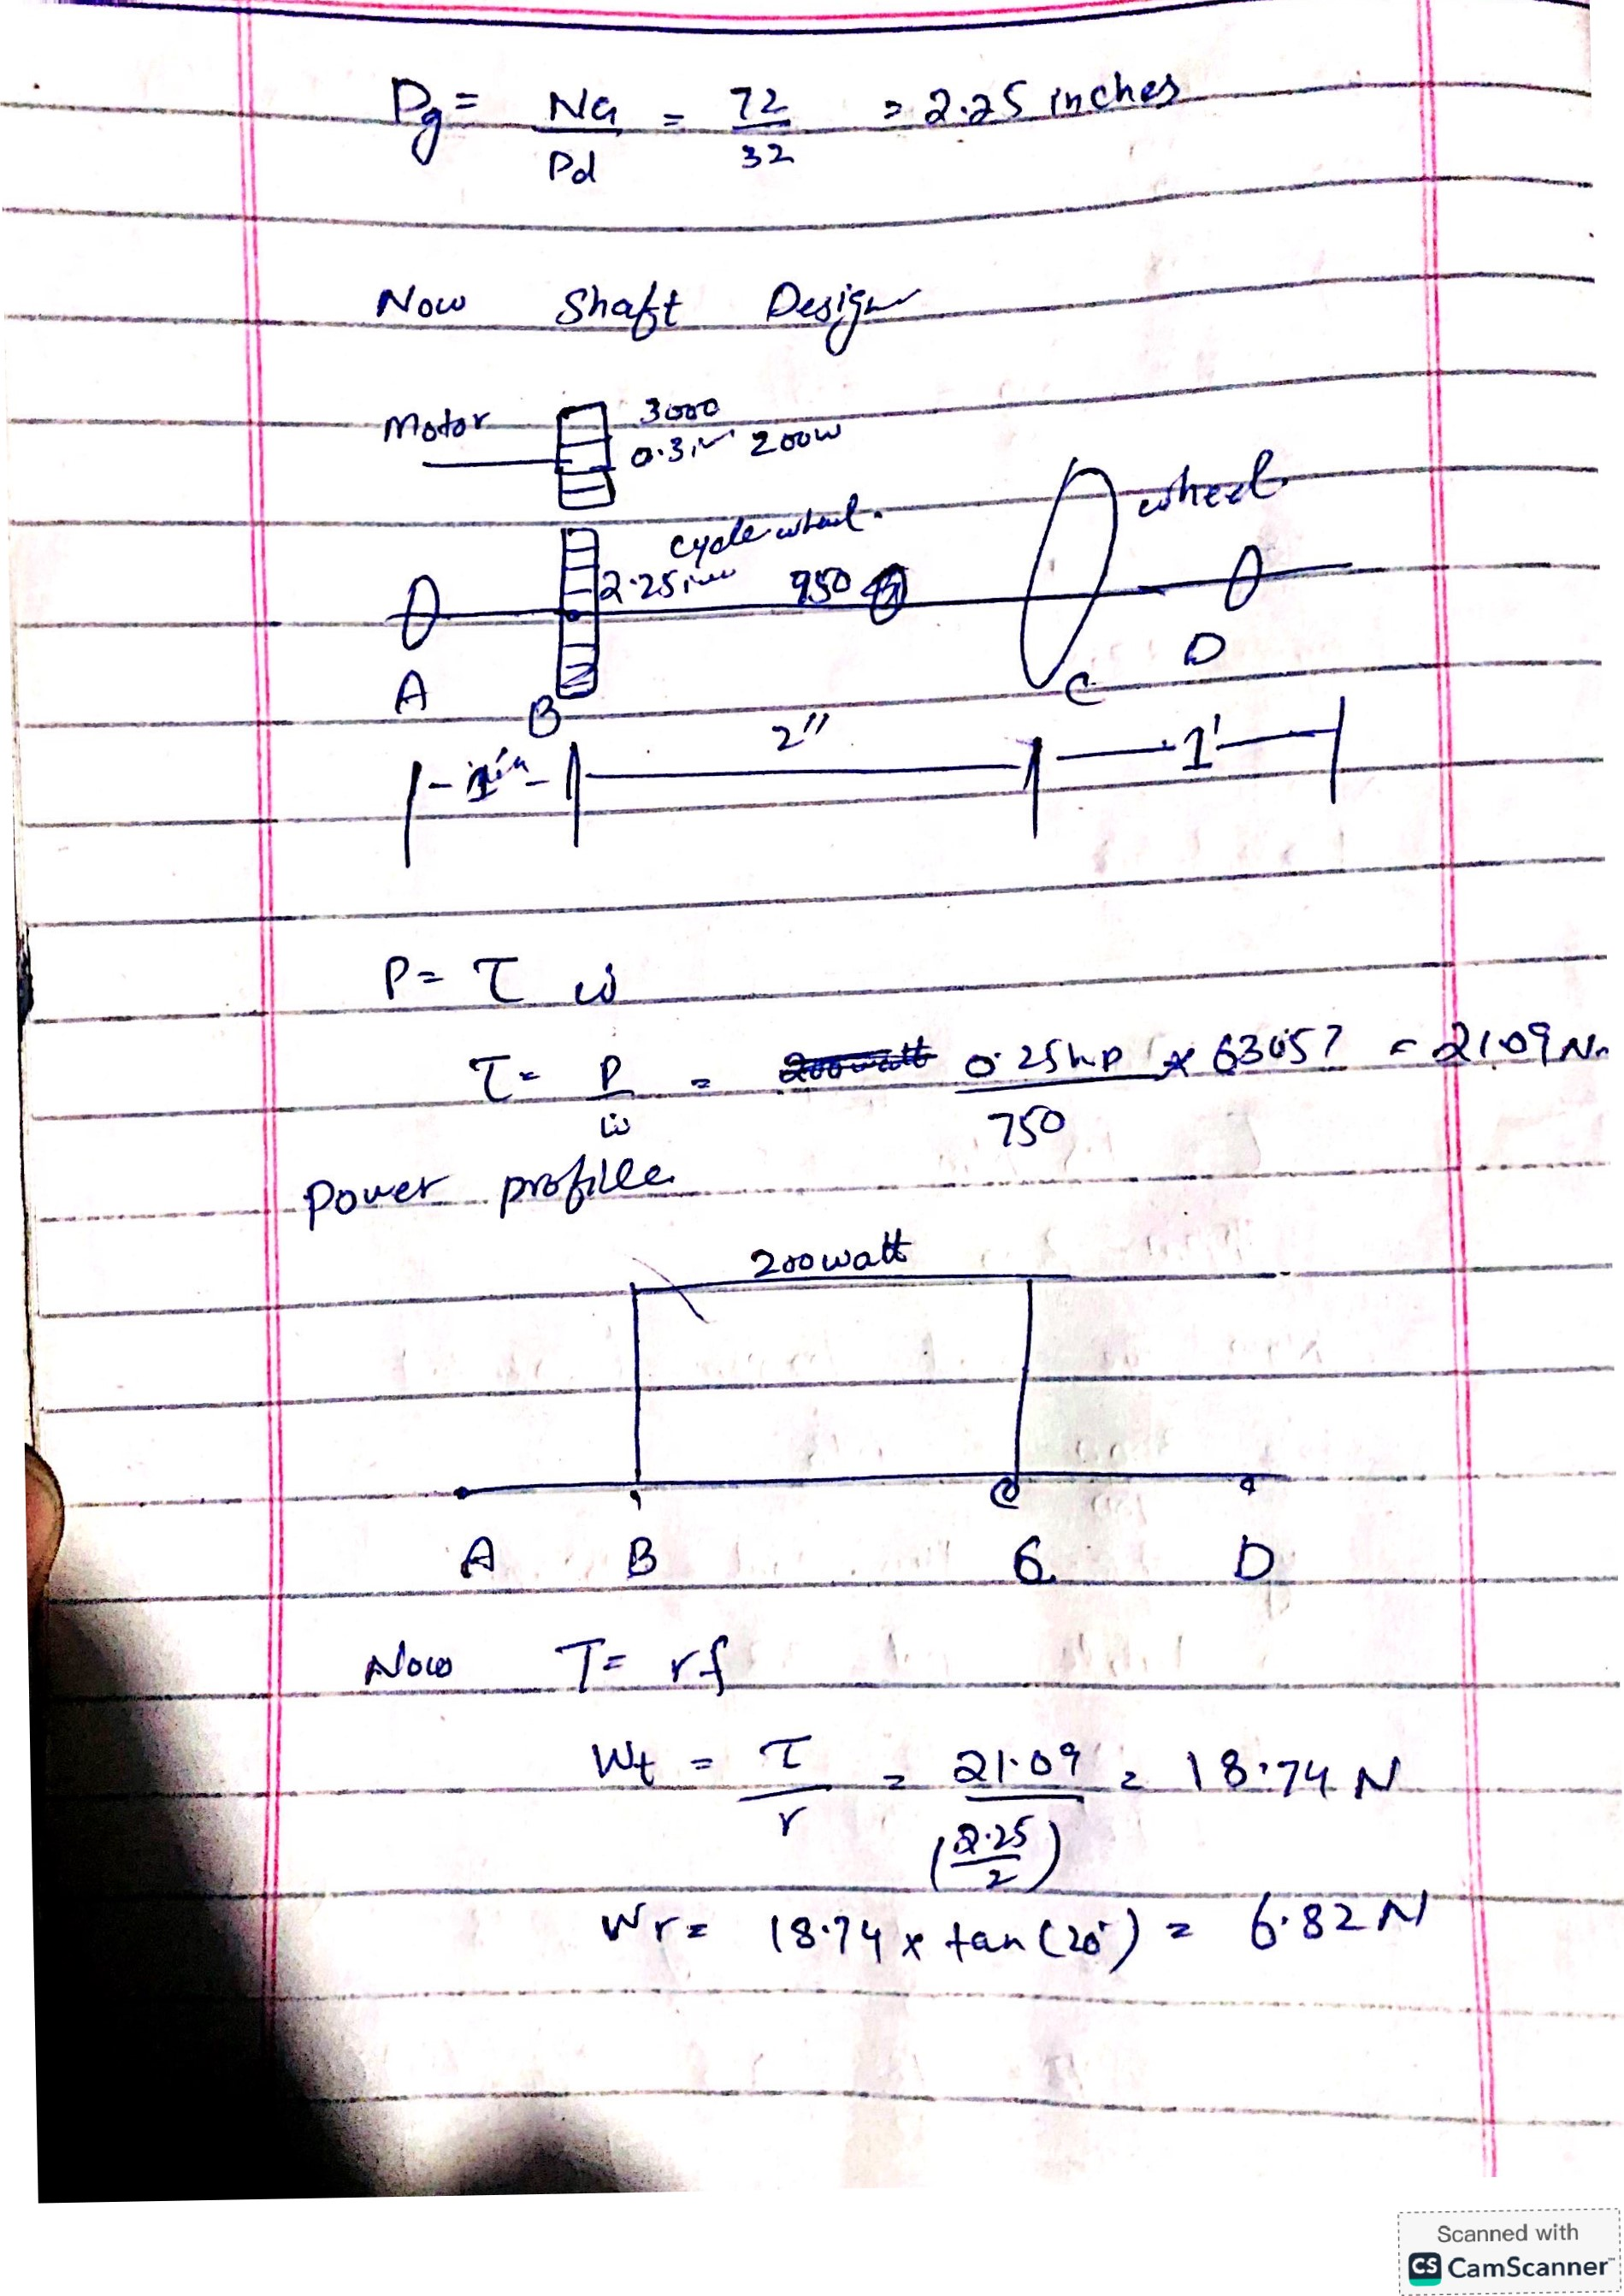 Dg = NG / Pd = 72 / 32 = 2.25 inches
Now Shaft Design
Motor 3000
0.3in 200w
cycle wheel. wheel
2.25in 950
A B C D
2" 1'
P = T ω
T = P / ω = 0.25hp × 63057 / 750 = 21.09 N
Power profile
200watt
A B C D
Now T = rf
Wt = T / r = 21.09 / (2.25 / 2) = 18.74 N
Wr = 18.74 × tan(20°) = 6.82 N
Scanned with
CS CamScanner